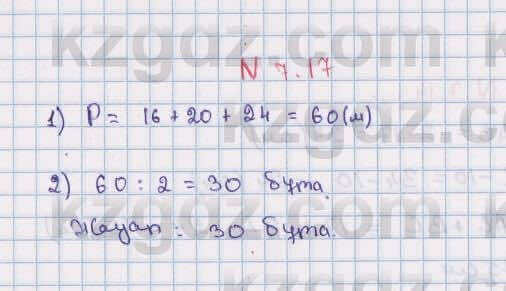 N 7.17
1) P = 16 + 20 + 24 = 60 (м)
2) 60 : 2 = 30 бұта.
Жауап: 30 бұта.
kzgdz.com